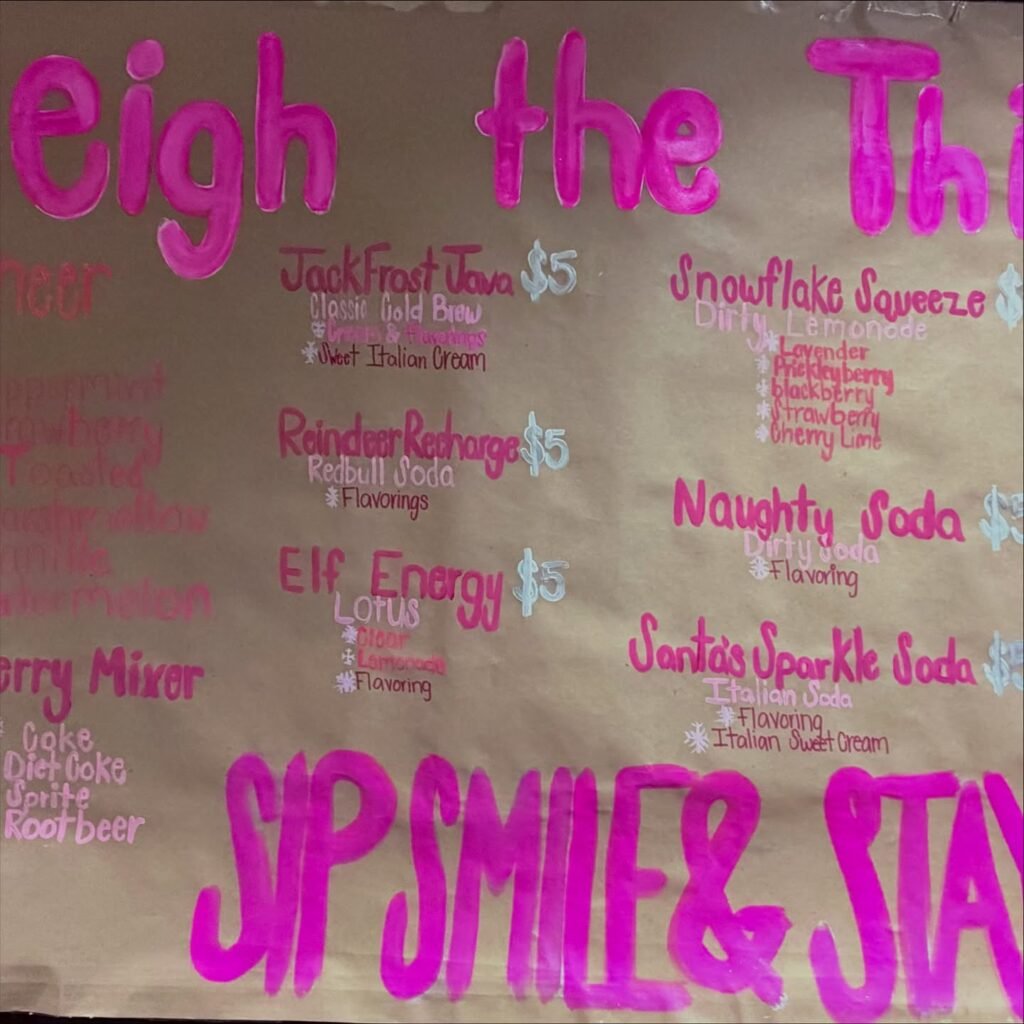 eigh the Thi
heer
ppermint
rawberry
Toasted
arshmallow
anilla
atermelon
erry Mixer
Coke
Diet Coke
Sprite
Rootbeer
JackFrost Java $5
Classic Cold Brew
Cream & Flavorings
Sweet Italian Cream
Reindeer Recharge $5
Redbull Soda
Flavorings
Elf Energy $5
Lotus
Clear
Lemonade
Flavoring
Snowflake Squeeze $
Dirty Lemonade
Lavender
Prickleyberry
blackberry
Strawberry
Cherry Lime
Naughty Soda $5
Dirty Soda
Flavoring
Santa's Sparkle Soda $5
Italian Soda
Flavoring
Italian Sweet Cream
SIP SMILE & STAY